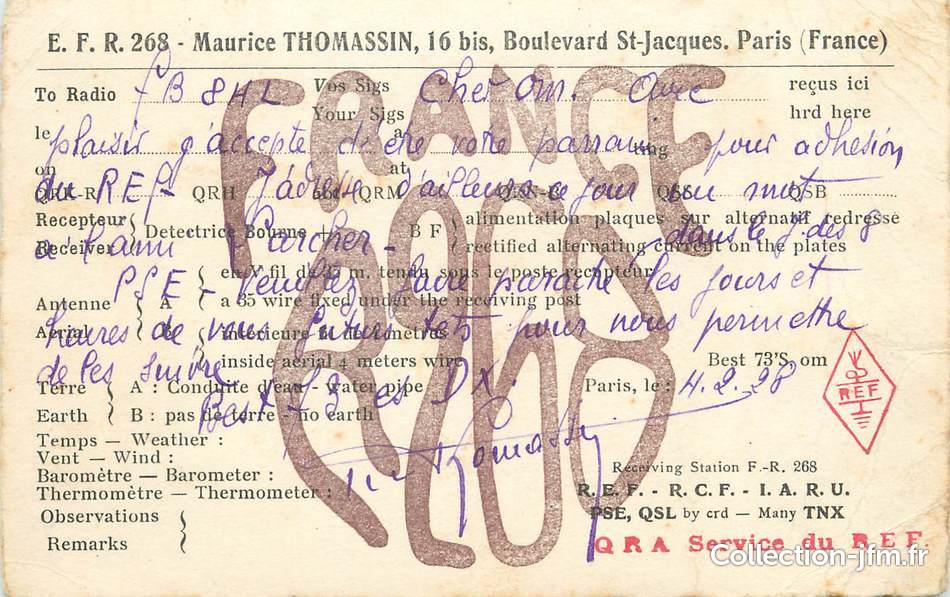 E. F. R. 268 - Maurice THOMASSIN, 16 bis, Boulevard St-Jacques. Paris (France)
FRANCE
To Radio FB 8HL Vos Sigs Cher Om. Avec reçus ici
Your Sigs hrd here
le plaisir j'accepte d'être votre parrain pour adhésion
on at
du REF - QRH QRM d'ailleurs ce jour un mot QSB
Recepteur Detectrice Bourne + BF alimentation plaques sur alternatif redresse
Receiver à l'ami Larcher - rectified alternating current on the plates
dans le J. des 8
en V fil de 35 m. tendu sous le poste recepteur
PSE - Veuillez faire paraître les jours et
Antenne A a 35 wire fixed under the receiving post
Aerial B intérieure 4 metres
heures de vos futurs tests pour nous permettre
inside aerial 4 meters wire
de les suivre Best 73'S om
Terre A : Conduite d'eau - water pipe Paris, le : 4.2.28
Best 73 es DX.
Earth B : pas de terre - no earth
REF
Temps — Weather :
Vent — Wind :
Thomassin
Baromètre — Barometer : Receiving Station F.-R. 268
Thermomètre — Thermometer : R. E. F. - R. C. F. - I. A. R. U.
Observations PSE, QSL by crd — Many TNX
Remarks QRA Service du R.E.F.
Collection-jfm.fr